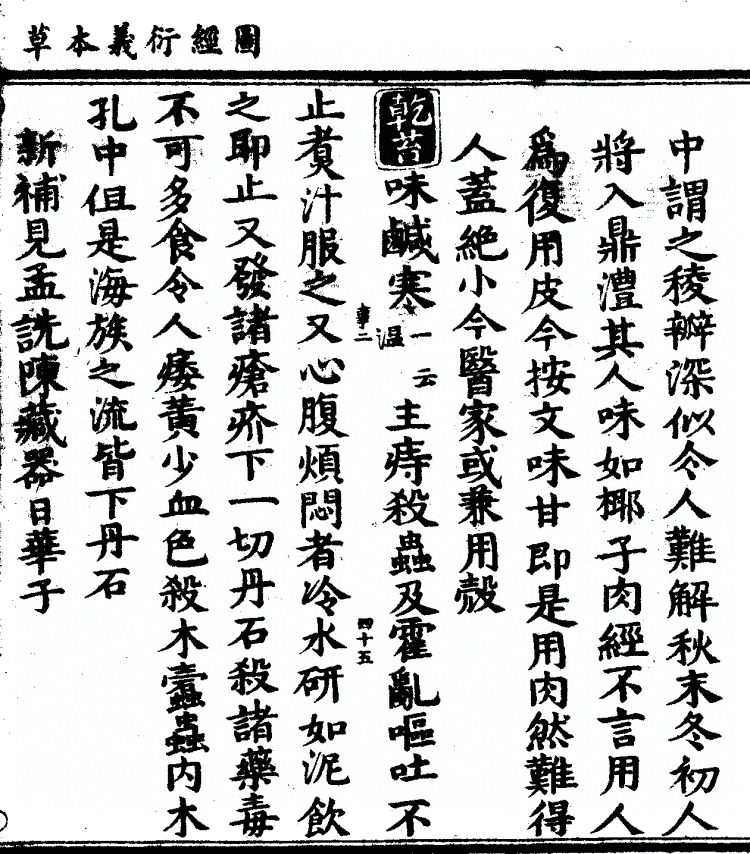 圖經衍義本草
中謂之稜瓣深似令人難解秋末冬初人
將入鼎澧其人味如椰子肉經不言用人
爲復用皮今按文味甘即是用肉然難得
人蓋絶小今醫家或兼用殼
乾苔味鹹寒一云温主痔殺蟲及霍亂嘔吐不
四十五
止煑汁服之又心腹煩悶者冷水研如泥飲
之即止又發諸瘡疥下一切丹石殺諸藥毒
不可多食令人痿黃少血色殺木蠹蟲内木
孔中但是海族之流皆下丹石
新補見孟詵陳藏器日華子